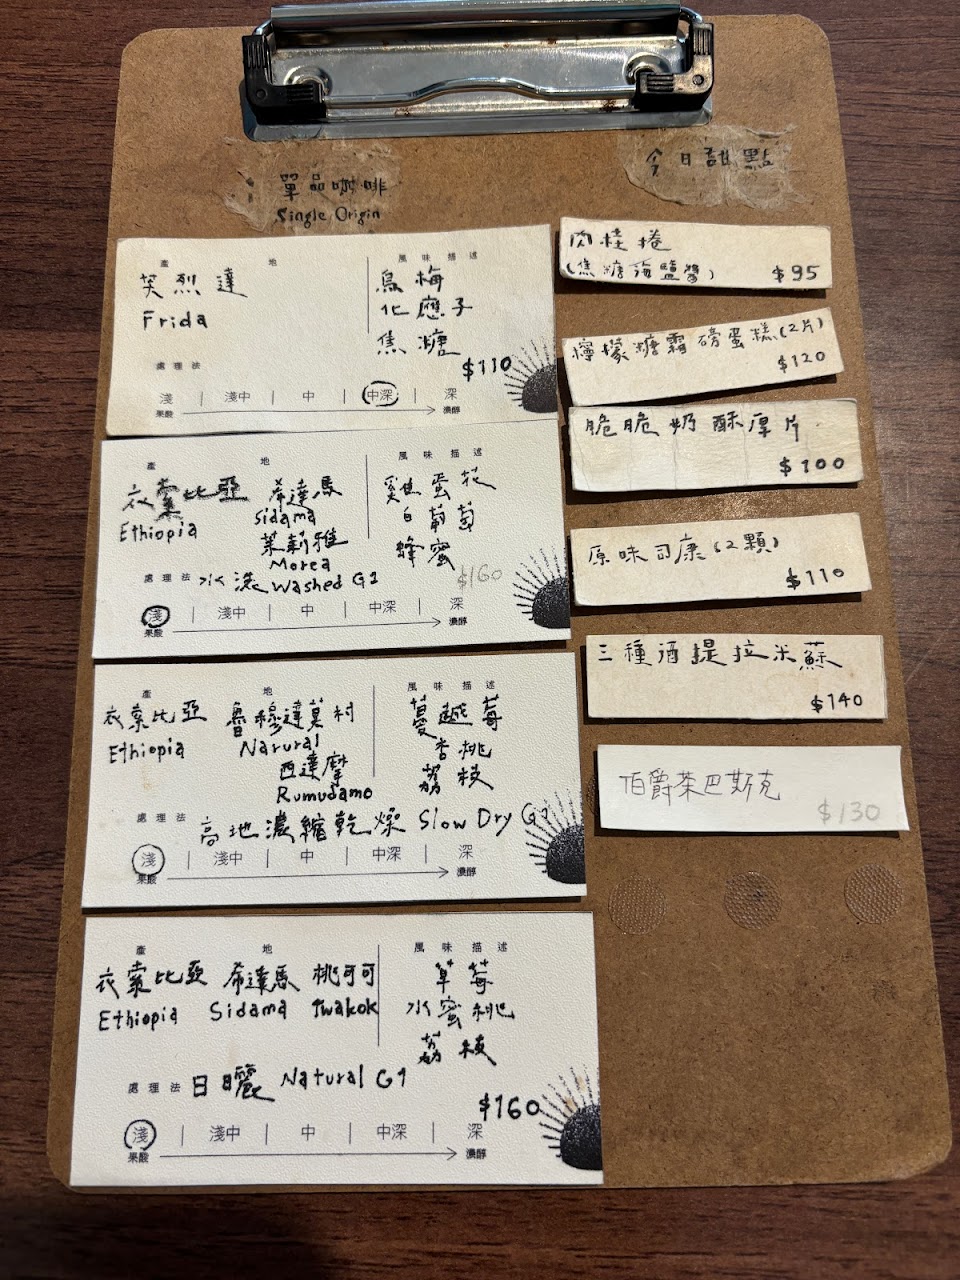 單品咖啡
Single Origin
產 地
芙烈達
Frida
風味描述
烏梅
化應子
焦糖
處理法
$110
淺 | 淺中 | 中 | 中深 | 深
果酸 濃醇
產 地
衣索比亞 希達馬
Ethiopia Sidama
茉莉雅
Morea
風味描述
雞蛋花
白葡萄
蜂蜜
處理法 水洗 Washed G1
$160
淺 | 淺中 | 中 | 中深 | 深
果酸 濃醇
產 地
衣索比亞 魯穆達莫村
Ethiopia Narural
西達摩
Rumudamo
風味描述
蔓越莓
香桃
荔枝
處理法 高地濃縮乾燥 Slow Dry
淺 | 淺中 | 中 | 中深 | 深
果酸 濃醇
產 地
衣索比亞 希達馬 桃可可
Ethiopia Sidama Twakok
風味描述
草莓
水蜜桃
荔枝
處理法 日曬 Natural G1
$160
淺 | 淺中 | 中 | 中深 | 深
果酸 濃醇
今日甜點
肉桂捲
(焦糖海鹽醬) $95
檸檬糖霜磅蛋糕(2片)
$120
脆脆奶酥厚片
$100
原味司康(2顆)
$110
三種酒提拉米蘇
$140
伯爵茶巴斯克
$130